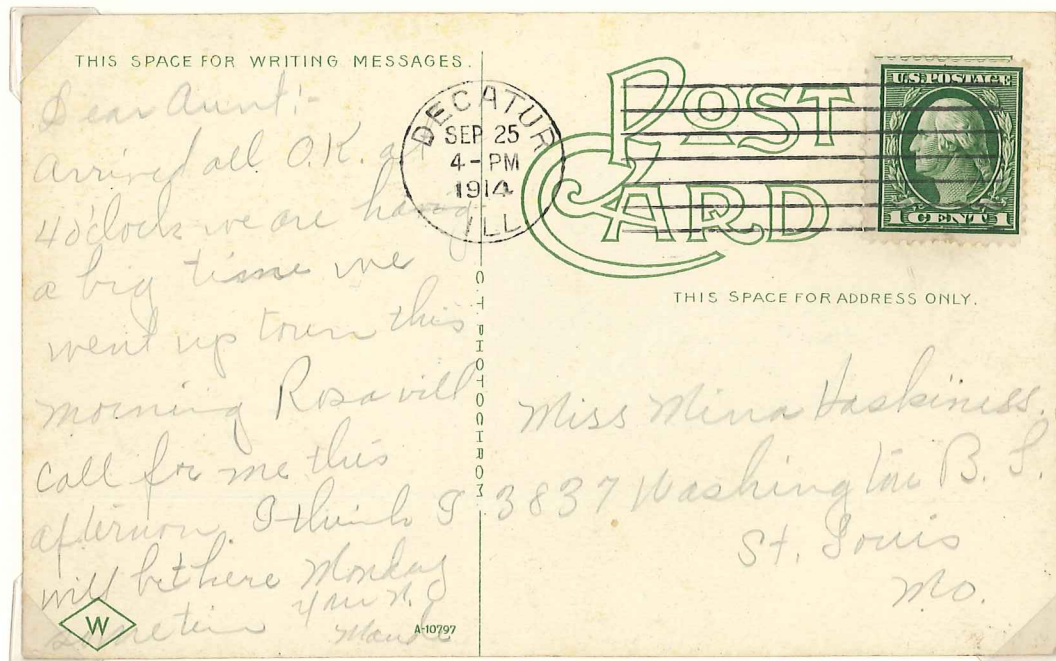 THIS SPACE FOR WRITING MESSAGES.
Dear Aunt:-
Arrived all O.K. at
4 o'clock we are having
a big time we
went up town this
morning Rosa will
call for me this
afternoon. I think I
will be there Monday
sometime
Maude
W
A-10797
C.T. PHOTOCHROM
DECATUR
SEP 25
4-PM
1914
ILL
POST
CARD
U.S. POSTAGE
1 CENT 1
THIS SPACE FOR ADDRESS ONLY.
Miss Mina Haskiness.
3837 Washington
St. Louis
Mo.